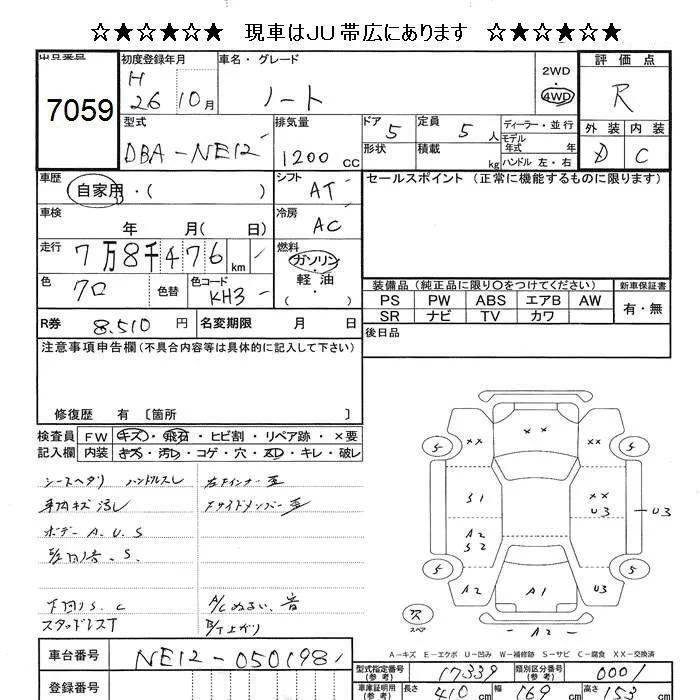 ☆★☆★☆★ 現車はJU帯広にあります ☆★☆★☆★
出品番号 7059
初度登録年月 H 26 10月
車名・グレード ノート
2WD 4WD
評価点 R
型式 DBA-NE12
排気量 1200 CC
ドア 5
形状
定員 5 人
積載 kg
ディーラー・並行
モデル年式 年
ハンドル 左・右
外装 D
内装 C
車歴 自家用・( )
シフト AT
セールスポイント (正常に機能するものに限ります)
車検 年 月( 日)
冷房 AC
走行 7万8千476 km
燃料 ガソリン・軽油・( )
色 クロ 色替
色コード KH3
装備品(純正品に限り〇をつけてください)
新車保証書 有・無
PS PW ABS エアB AW
SR ナビ TV カワ
R券 8,510 円
名変期限 月 日
後日品
注意事項申告欄(不具合内容等は具体的に記入して下さい)
修復歴 有 〔箇所 〕
検査員 FW キズ・飛石・ヒビ割・リペア跡・×要
記入欄 内装 キズ・汚レ・コゲ・穴・スレ・キレ・破レ
シートヘタリ ハンドルスレ
ボデー A.U.S
下回りS.C
スタッドレスT
車台番号 NE12-050198
登録番号
A-キズ E-エクボ U-凹み W-補修跡 S-サビ C-腐食 XX-交換済
型式指定番号(参考) 17339
類別区分番号(参考) 0001
車庫証明用(参考) 長さ 410 cm 幅 169 cm 高さ 153 cm
××
××
5
5
S1
××
U3
U3
A2
S2
5
5
A2
A1
U3
A2
スペア